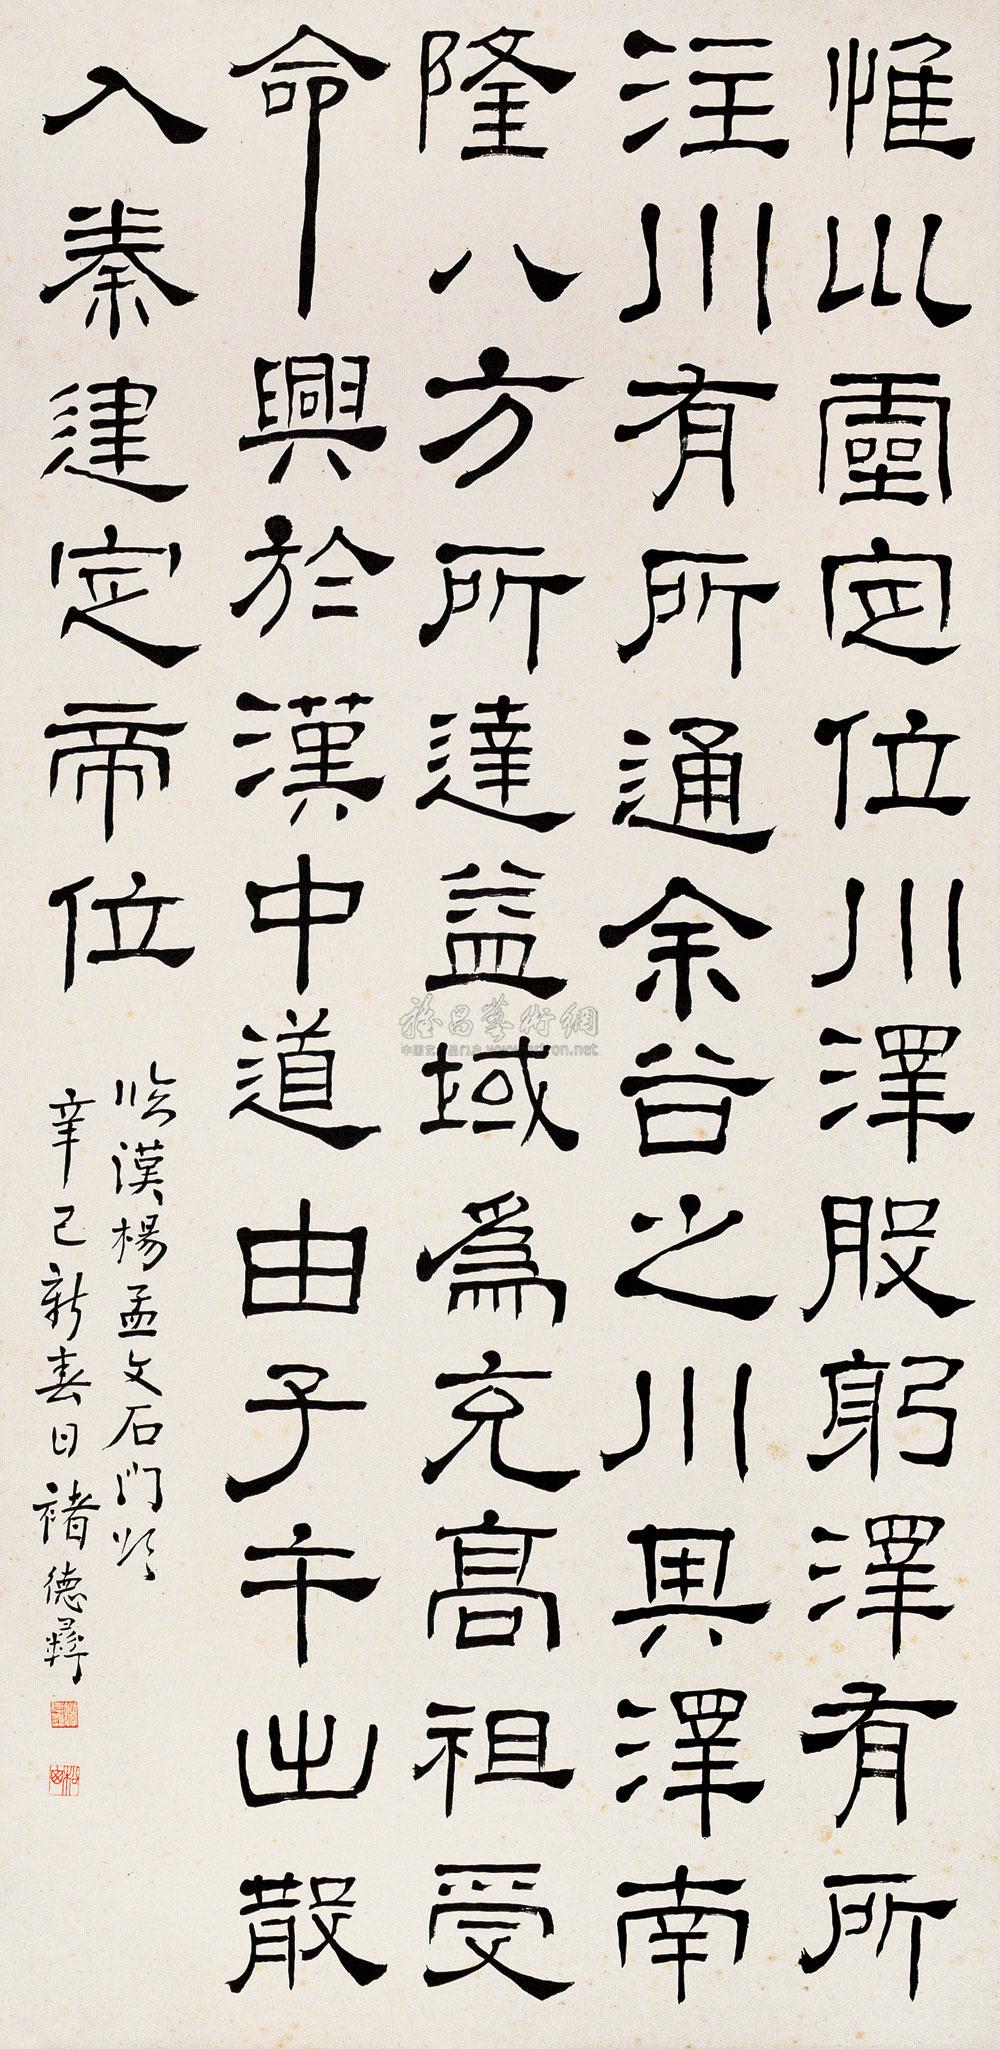 惟巛靈定位川澤股躬澤有所
注川有所通余谷之川其澤南
隆八方所達益域爲充高祖受
命興於漢中道由子午出散
入秦建定帝位
臨漢楊孟文石門頌
辛巳新春日褚德彝
雅昌藝術網
www.artron.net